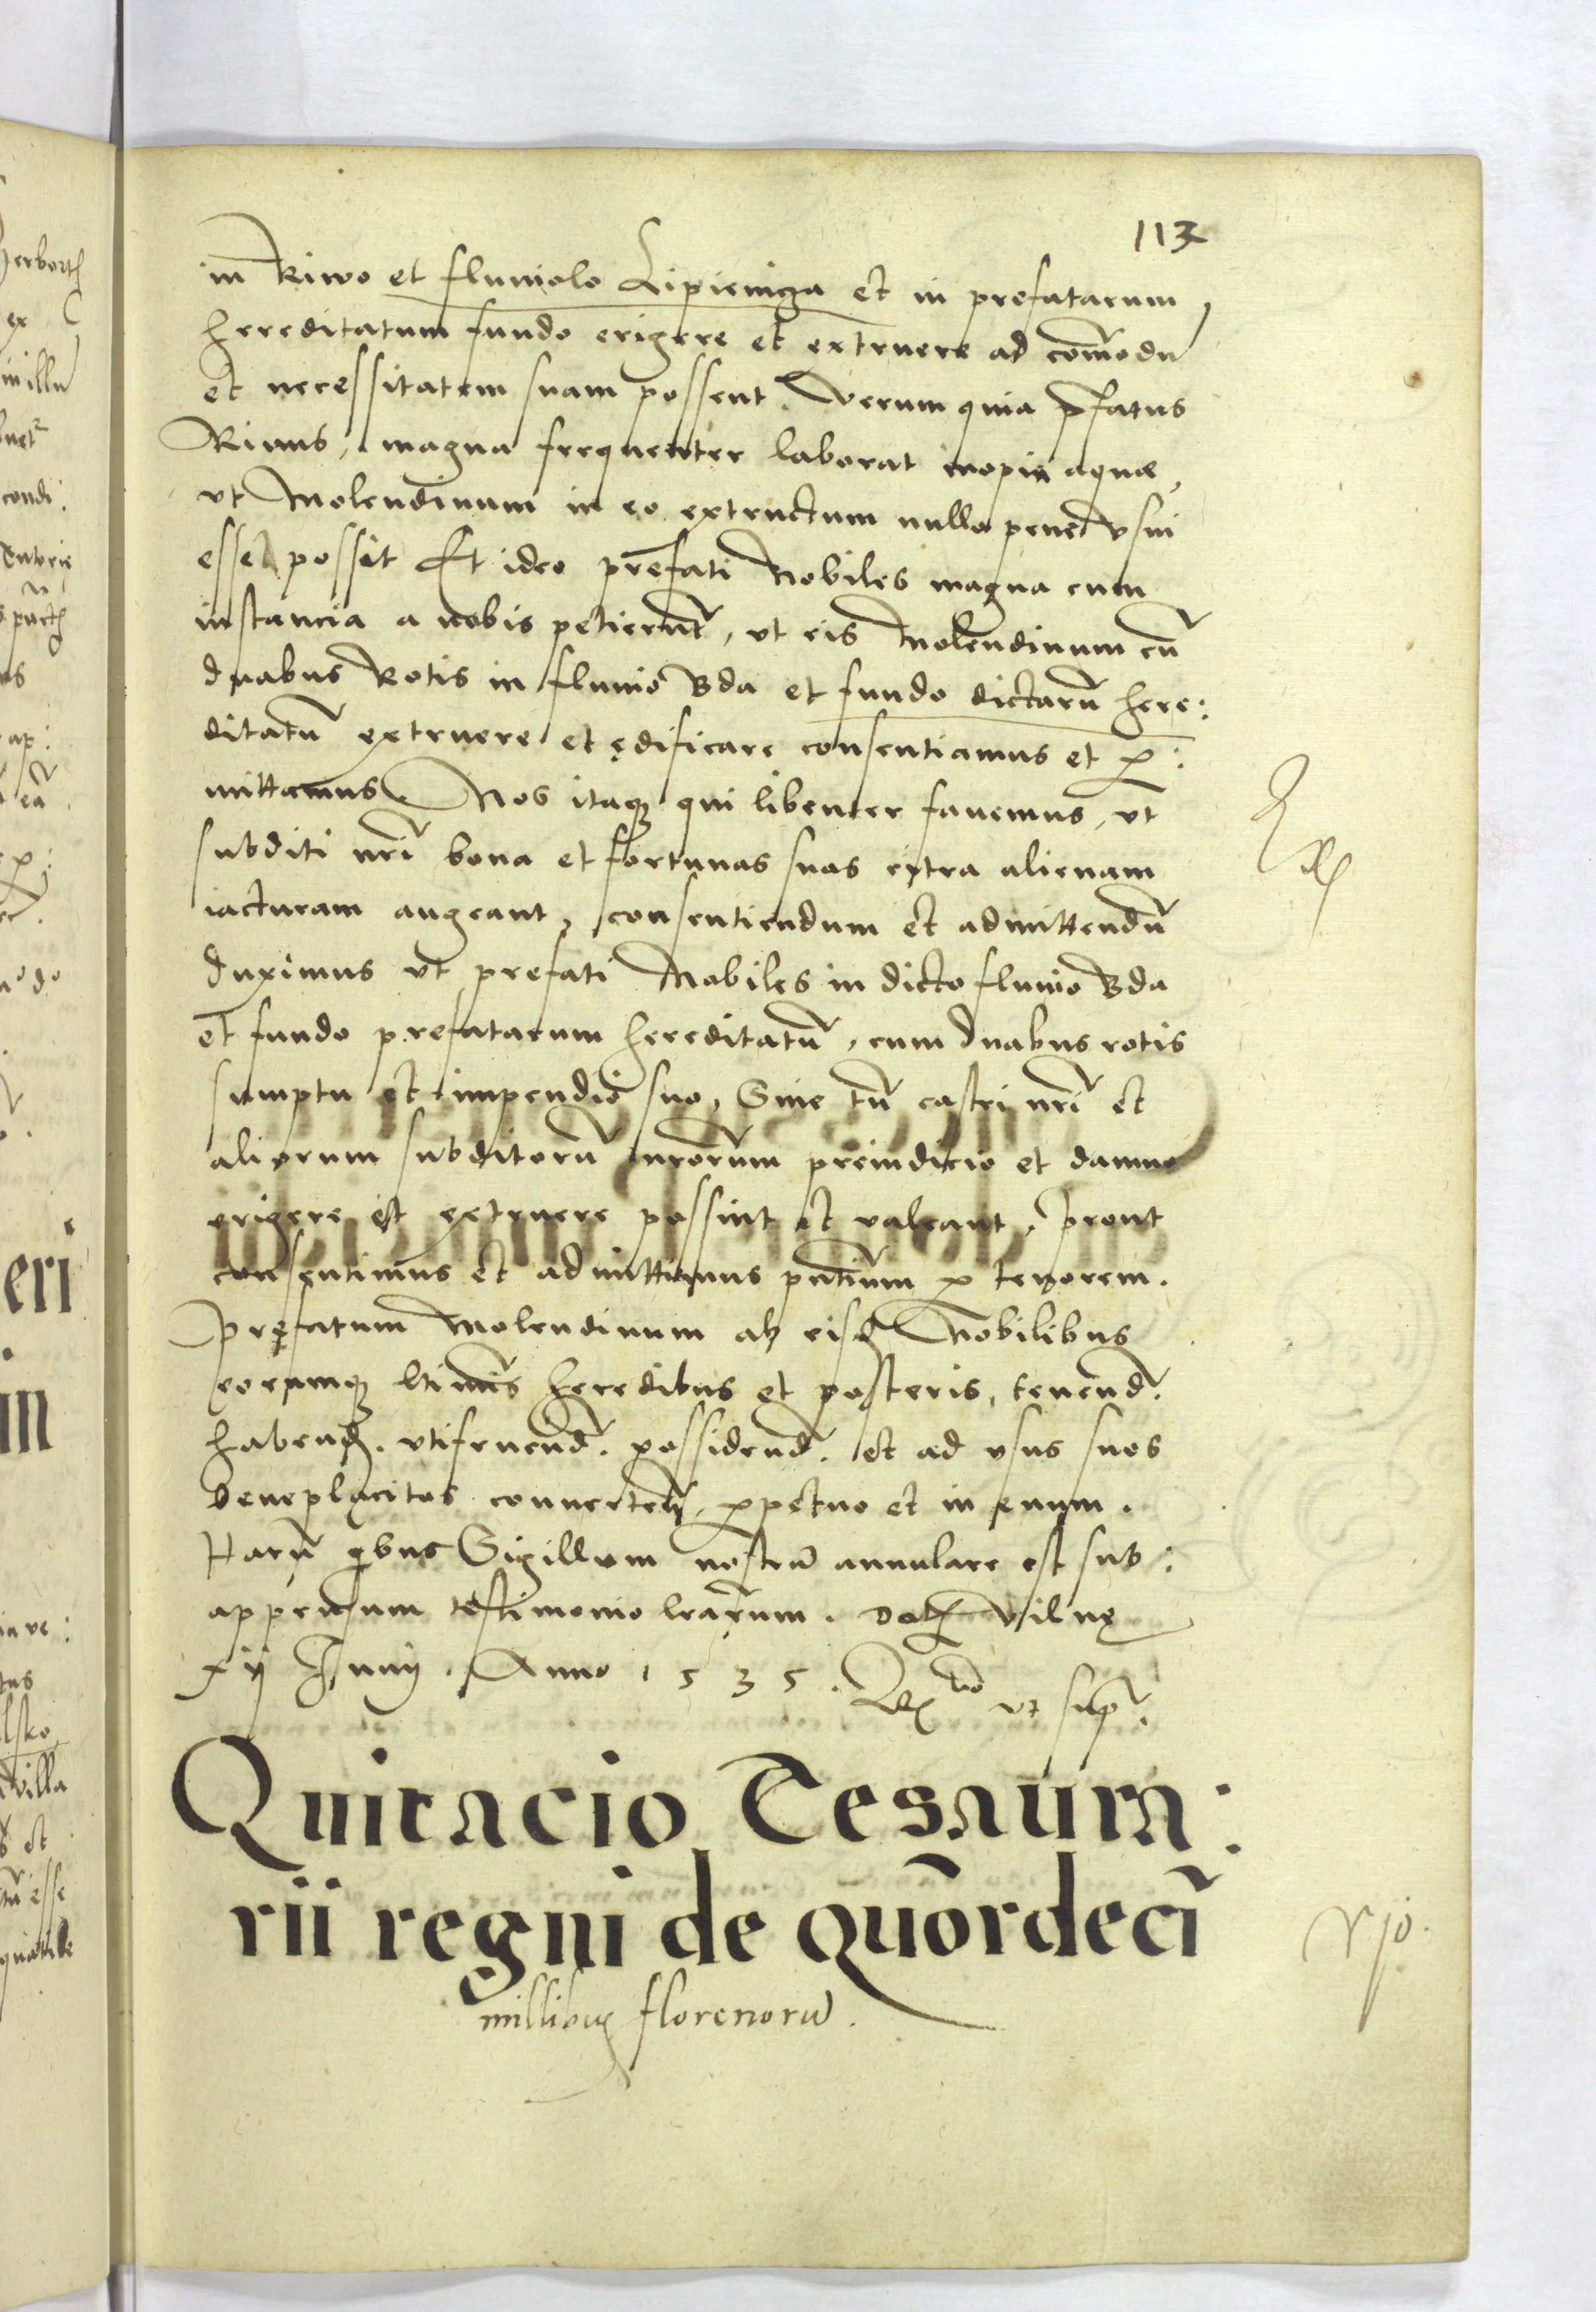 113
in Riwo et fluviolo Lipienicza et in prefatarum
hereditatum fundo erigere et extruere ad com̄odū
et necessitatem suam possent. Verum quia p̄fatus
Rivus, magna frequenter laborat inopia aquæ,
vt Molendinum in eo extructum nullo pene vsui
esse possit Et ideo prefati Nobiles magna cum
instancia a nobis petierunt, vt eis Molendinum cū
duabus Rotis in fluvio Bda et fundo dictarū here:
ditatū extruere et ędificare consentiamus et p:
mittamus. Nos itaqȝ qui libenter favemus, vt
subditi nr̄i bona et fortunas suas citra alienam
iacturam augeant, consentiendum et admittendū
duximus vt prefati Nobiles in dicto fluvio Bda
et fundo prefatarum hereditatū, cum duabus rotis
sumptu et impendio suo, Sine tn̄ castri nr̄i et
aliorum subditorū nr̄orum preiudicio et damno
erigere et extruere possint et valeant, prout
consentimus et admittimus pn̄tium p tenorem.
Pręfatum Molendinum ab eisd Nobilibus
eorumqȝ ltimis heredibus et posteris, tenend.
habend. vtifruend. possidend. et ad vsus suos
beneplacitos convertend, ppetuo et in ęvum.
Harū qbus Sigillum nostrū annulare est sub:
appensum testimonio lrarum. Dat Vilnę
xij Junij. Anno 1535. Rtio vt sup.
Quitacio Tesaura:
rii regni de quordeci
millibus florenorū.